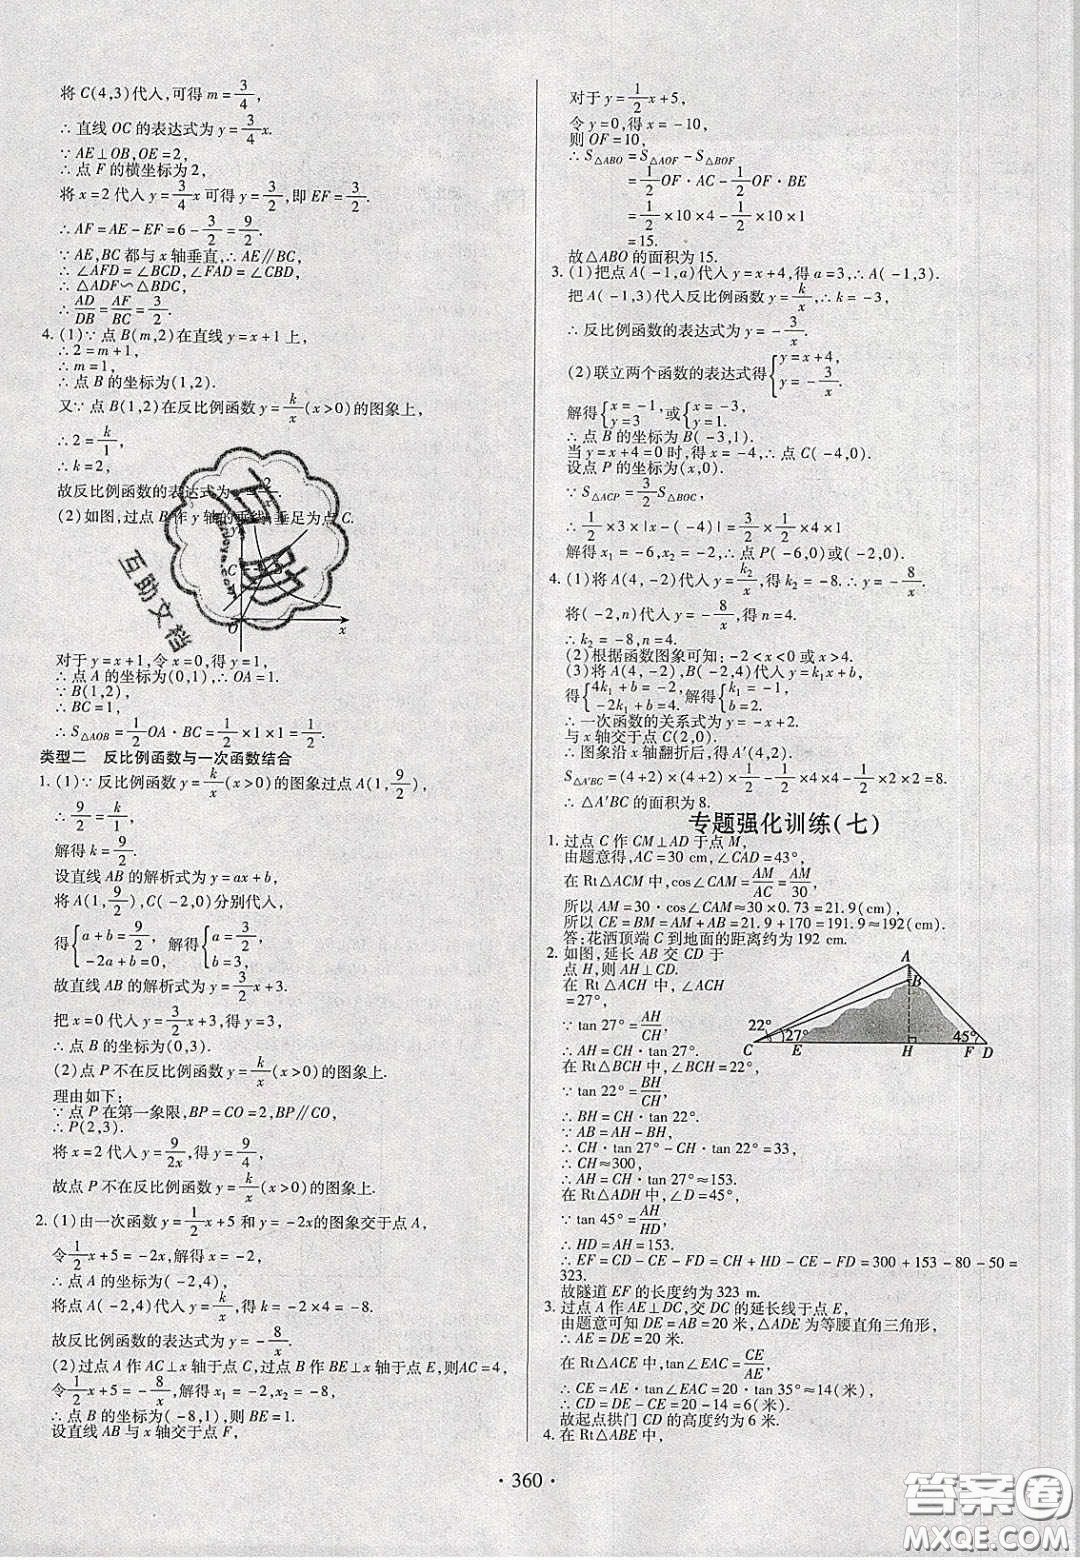 将C(4,3)代入,可得m=3/4,
∴直线OC的表达式为y=3/4x.
∵AE⊥OB,OE=2,
∴点F的横坐标为2,
将x=2代入y=3/4x可得y=3/2,即EF=3/2.
∴AF=AE-EF=6-3/2=9/2.
∵AE,BC都与x轴垂直,∴AE∥BC.
∴∠AFD=∠BCD,∠FAD=∠CBD.
∴△ADF∽△BDC,
∴AD/DB=AF/BC=3/2.
4.(1)∵点B(m,2)在直线y=x+1上,
∴2=m+1,
∴m=1,
∴点B的坐标为(1,2).
又∵点B(1,2)在反比例函数y=k/x(x>0)的图象上,
∴2=k/1,
∴k=2,
故反比例函数的表达式为y=2/x.
(2)如图,过点B作y轴的垂线,垂足为点C.
互助
互助文档
y
C
O
x
对于y=x+1,令x=0,得y=1,
∴点A的坐标为(0,1),∴OA=1.
∵B(1,2),
∴BC=1,
∴S△AOB=1/2OA·BC=1/2×1×1=1/2.
类型二 反比例函数与一次函数结合
1.(1)∵反比例函数y=k/x(x>0)的图象过点A(1,9/2),
∴9/2=k/1,
解得k=9/2.
设直线AB的解析式为y=ax+b,
将A(1,9/2),C(-2,0)分别代入,
得{a+b=9/2, -2a+b=0, 解得{a=3/2, b=3.
故直线AB的解析式为y=3/2x+3.
把x=0代入y=3/2x+3,得y=3,
∴点B的坐标为(0,3).
(2)点P不在反比例函数y=k/x(x>0)的图象上.
理由如下:
∵点P在第一象限,BP=CO=2,BP∥CO,
∴P(2,3).
将x=2代入y=9/2x,得y=9/4
故点P不在反比例函数y=k/x(x>0)的图象上.
2.(1)由一次函数y=1/2x+5和y=-2x的图象交于点A,
令1/2x+5=-2x,解得x=-2,
∴点A的坐标为(-2,4),
将点A(-2,4)代入y=k/x,得k=-2×4=-8.
故反比例函数的表达式为y=-8/x.
(2)过点A作AC⊥x轴于点C,过点B作BE⊥x轴于点E,则AC=4,
令1/2x+5=-8/x,解得x1=-2,x2=-8,
∴点B的坐标为(-8,1),则BE=1.
设直线AB与x轴交于点F,
对于y=1/2x+5,
令y=0,得x=-10,
则OF=10,
∴S△ABO=S△AOF-S△BOF
=1/2OF·AC-1/2OF·BE
=1/2×10×4-1/2×10×1
=15.
故△ABO的面积为15.
3.(1)把点A(-1,a)代入y=x+4,得a=3,∴A(-1,3).
把A(-1,3)代入反比例函数y=k/x,∴k=-3,
∴反比例函数的表达式为y=-3/x.
(2)联立两个函数的表达式得{y=x+4, y=-3/x.
解得{x=-1, y=3 或{x=-3, y=1.
∴点B的坐标为B(-3,1).
当y=x+4=0时,得x=-4,∴点C(-4,0).
设点P的坐标为(x,0).
∵S△ACP=3/2S△BOC,
∴1/2×3×|x-(-4)|=3/2×1/2×4×1
解得x1=-6,x2=-2,∴点P(-6,0)或(-2,0).
4.(1)将A(4,-2)代入y=k2/x,得k2=-8.∴y=-8/x.
将(-2,n)代入y=-8/x,得n=4.
∴k2=-8,n=4.
(2)根据函数图象可知:-2<x<0或x>4.
(3)将A(4,-2),B(-2,4)代入y=k1x+b,
得{4k1+b=-2, -2k1+b=4. 解得{k1=-1, b=2.
∴一次函数的关系式为y=-x+2.
与x轴交于点C(2,0).
∴图象沿x轴翻折后,得A′(4,2).
S△A′BC=(4+2)×(4+2)×1/2-1/2×4×4-1/2×2×2=8.
∴△A′BC的面积为8.
专题强化训练(七)
1.过点C作CM⊥AD于点M,
由题意得,AC=30 cm,∠CAD=43°,
在Rt△ACM中,cos∠CAM=AM/AC=AM/30,
所以AM=30·cos∠CAM≈30×0.73=21.9(cm),
所以CE=BM=AM+AB=21.9+170=191.9≈192(cm).
答:花洒顶端C到地面的距离约为192 cm.
2.如图,延长AB交CD于
点H,则AH⊥CD.
在Rt△ACH中,∠ACH
=27°,
∵tan 27°=AH/CH,
∴AH=CH·tan 27°.
A
B
22°
27°
45°
C
E
H
F
D
在Rt△BCH中,∠BCH=22°,
∵tan 22°=BH/CH,
∴BH=CH·tan 22°.
∵AB=AH-BH,
∴CH·tan 27°-CH·tan 22°=33,
∴CH≈300,
∴AH=CH·tan 27°≈153.
在Rt△ADH中,∠D=45°,
∵tan 45°=AH/HD,
∴HD=AH=153.
∴EF=CD-CE-FD=CH+HD-CE-FD=300+153-80-50=
323.
故隧道EF的长度约为323 m.
3.过点A作AE⊥DC,交DC的延长线于点E,
由题意可知DE=AB=20米,△ADE为等腰直角三角形,
∴AE=DE=20米,
在Rt△ACE中,∵tan∠EAC=CE/AE,
∴CE=AE·tan∠EAC=20·tan 35°≈14(米),
∴CD=DE-CE=20-14=6(米).
故起点拱门CD的高度约为6米.
4.在Rt△ABE中,
·360·
答案圈
MXQE.COM